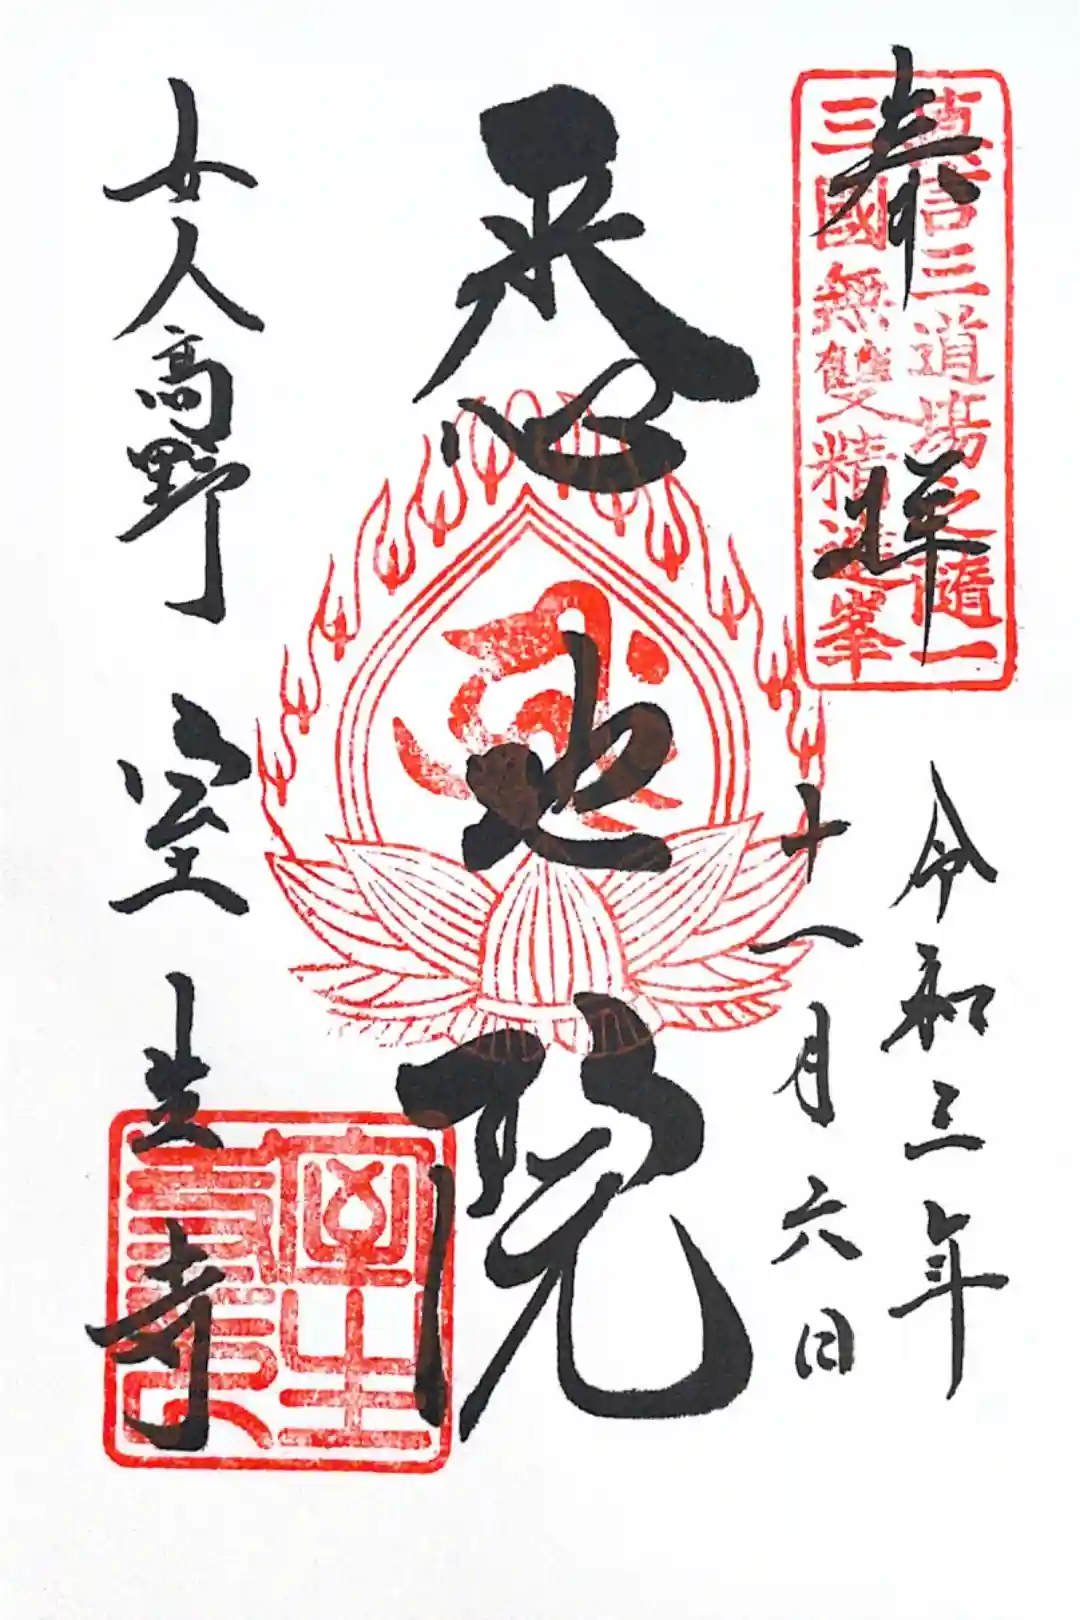 奉拝
真言三道場之隨一
三國無雙精進峯
令和三年
十一月六日
悉地院
女人高野
室生寺